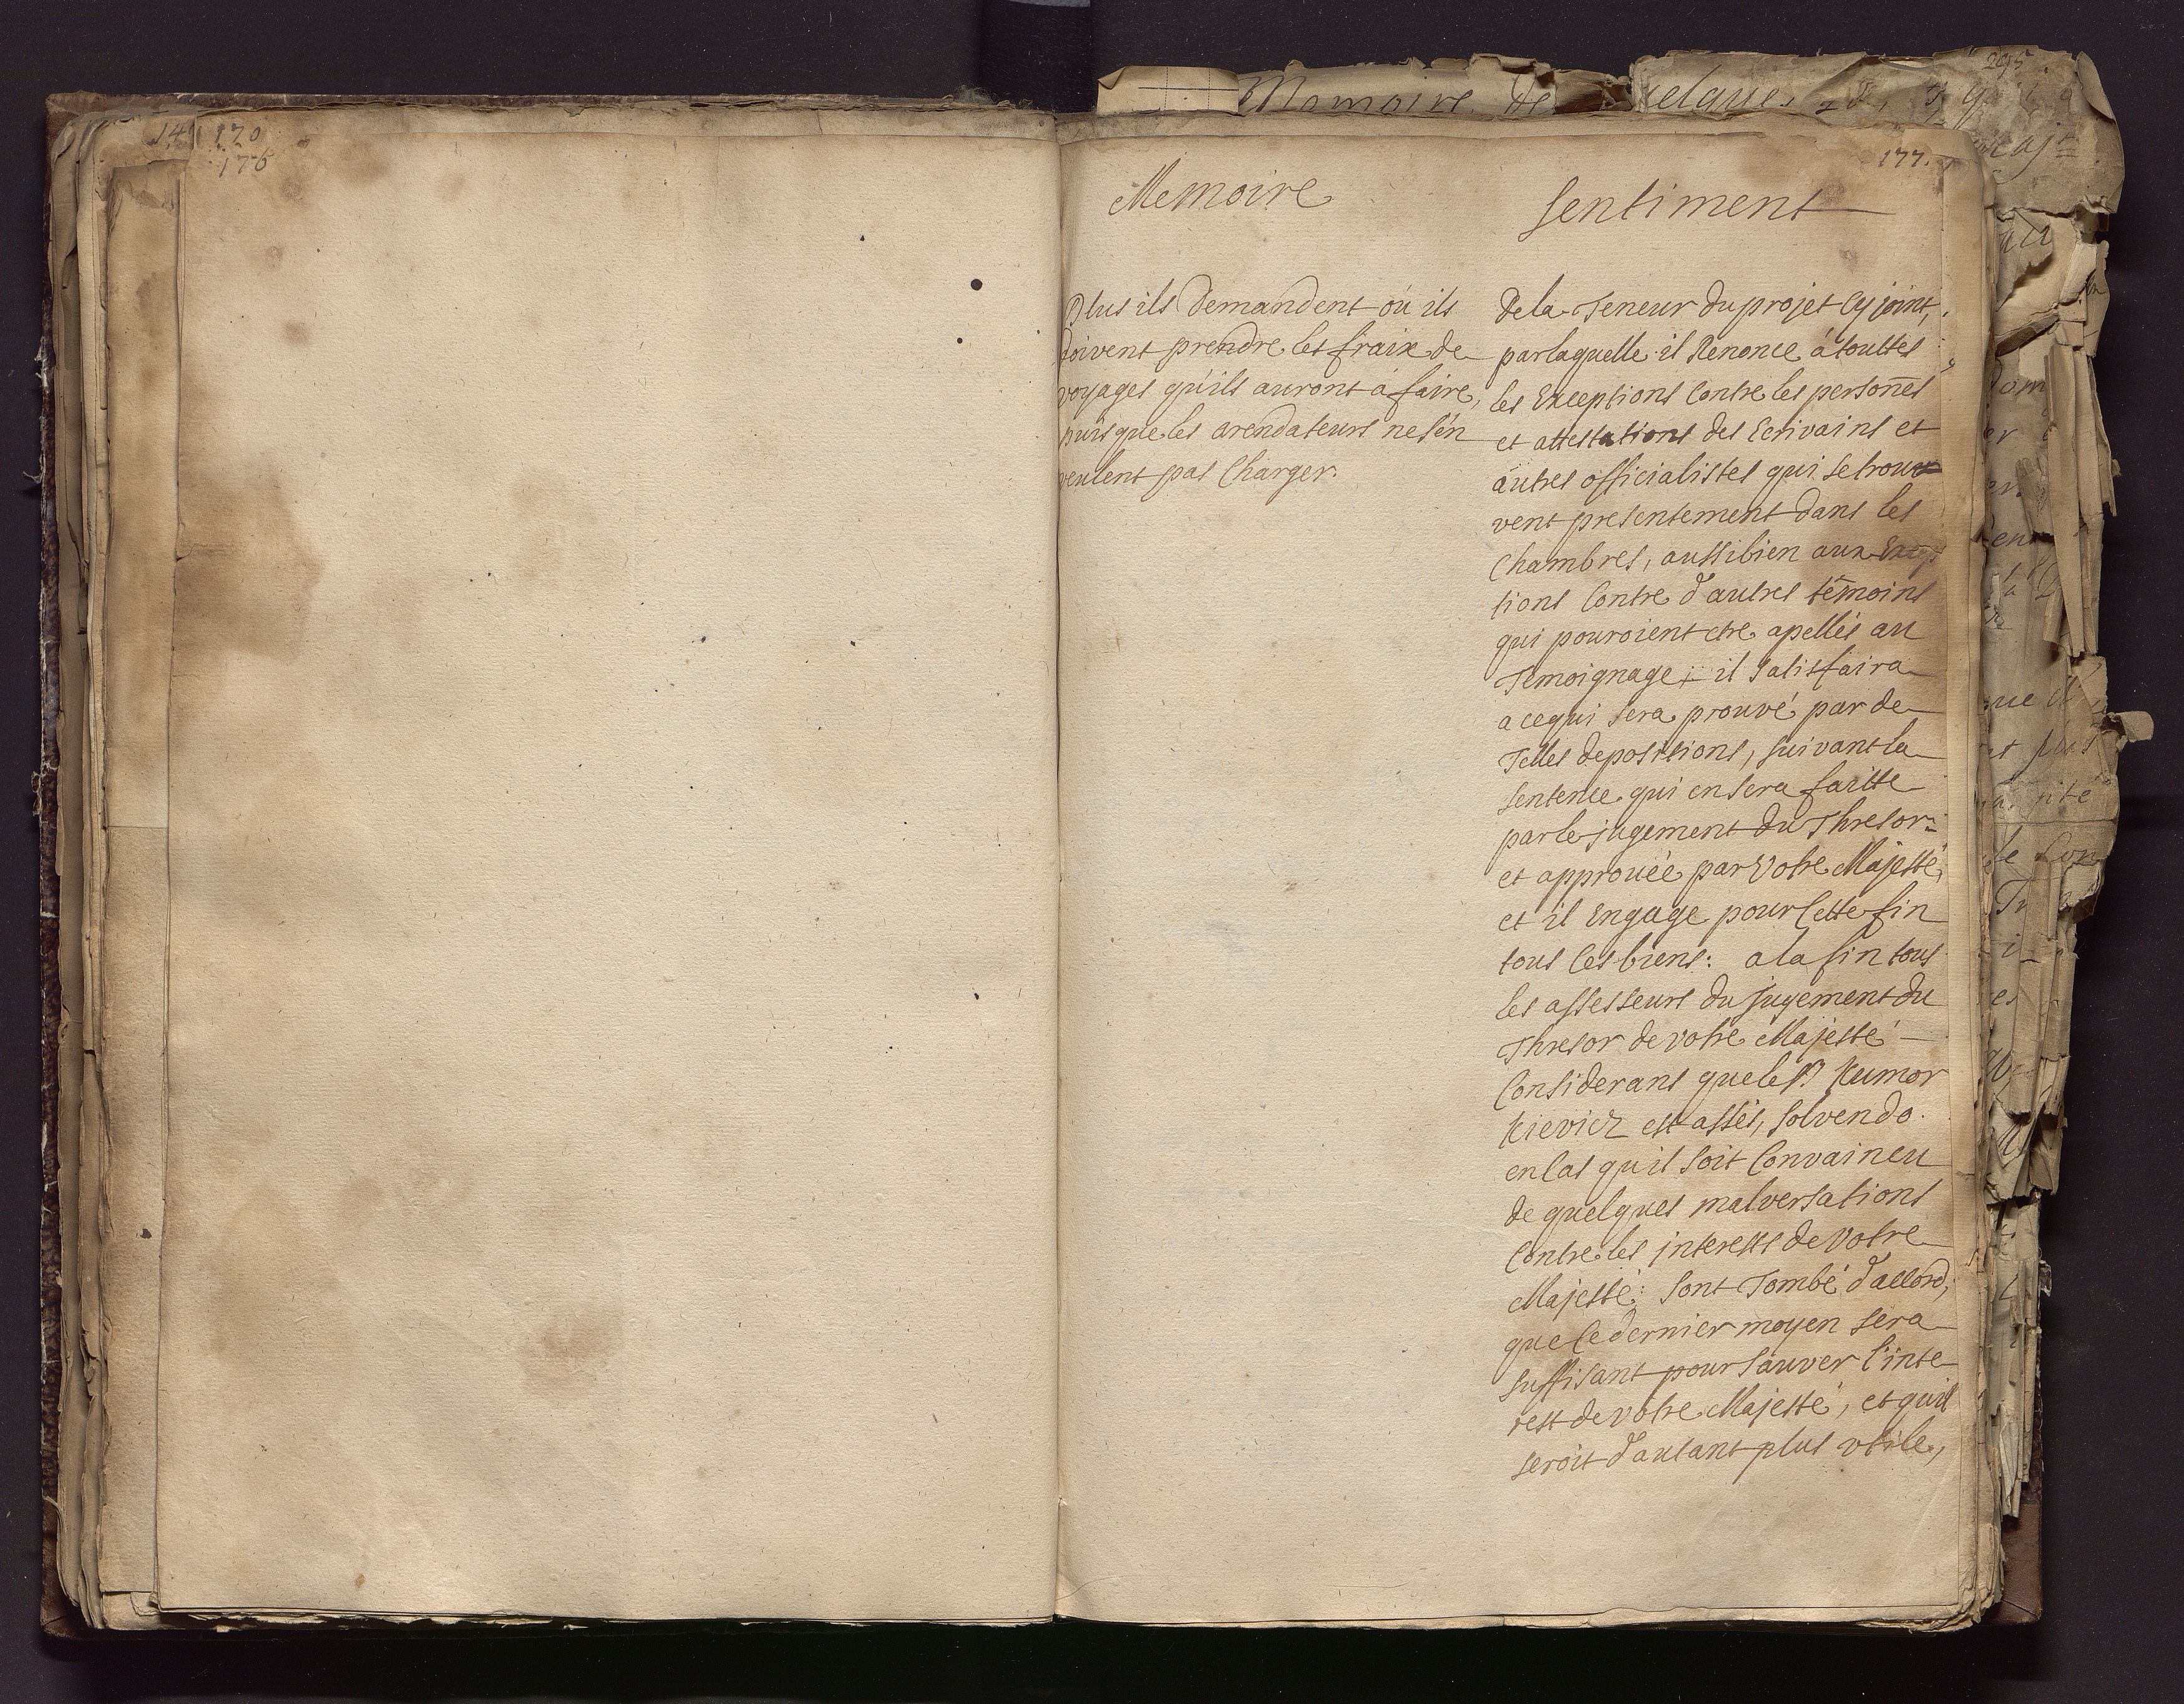 141 170
176
Memoire de elques
295
177.
Memoire
Plus ils demandent où ils
doivent prendre les fraix de
voyages qu'ils auront à faire,
puisque les arendateurs ne s'en
veulent pas Charger.
Sentiment
De la Teneur du projet Cy joint,
par laquelle il Renonce à touttes
les Exceptions Contre les persones
et attestations des Ecrivains et
autres officialistes qui se trou
vent presentement dans les
Chambres, aussibien aux Excep
tions Contre d'autres témoins
qui pouroient etre apellés au
Temoignage; il satisfaira
a ce qui sera prouvé par de
Telles depositions, suivant la
sentence qui en sera faitte
par le jugement du Thresor
et approuée par Votre Majesté,
et il Engage pour Cette fin
tous Ces biens: a la fin tous
les assesseurs du jugement du
Thresor de votre Majesté
Considerans que le Sr Kumor
kievicz est assés, solvendo.
en Cas qu'il soit Convaincu
de quelques malversations
Contre les interests de Votre
Majesté: sont Tombé d'accord,
que Ce dernier moyen sera
suffisant pour sauver l'inte
rest de votre Majesté, et qu'il
seroit d'autant plus utile,